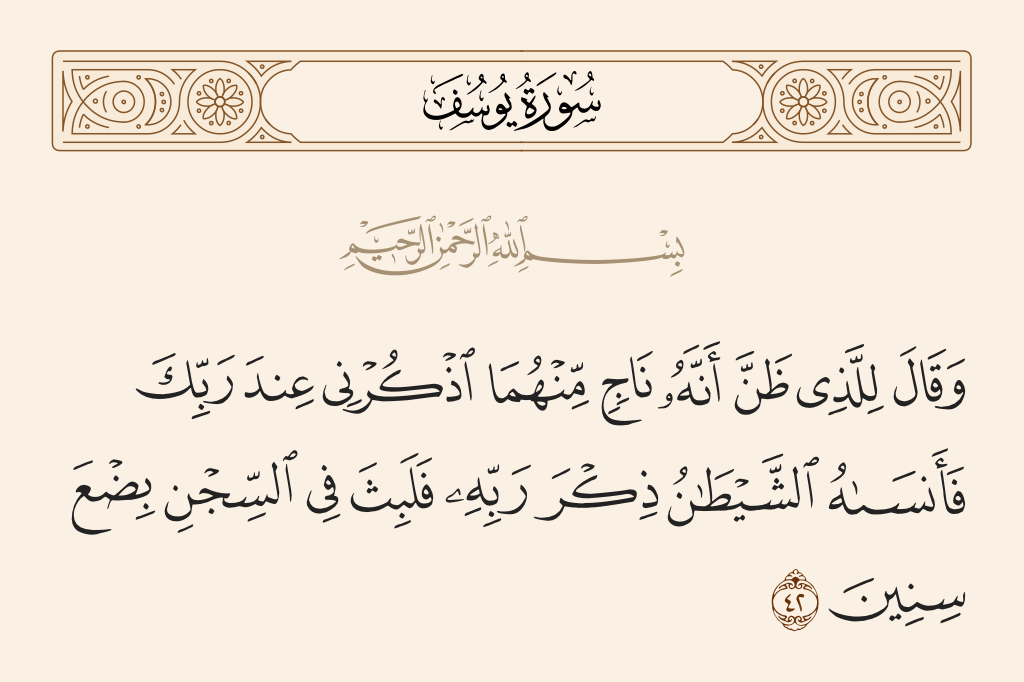 سُورَةُ يُوسُفَ
بِسْمِ ٱللَّهِ ٱلرَّحْمَٰنِ ٱلرَّحِيمِ
وَقَالَ لِلَّذِى ظَنَّ أَنَّهُۥ نَاجٍ مِّنْهُمَا ٱذْكُرْنِى عِندَ رَبِّكَ
فَأَنسَىٰهُ ٱلشَّيْطَٰنُ ذِكْرَ رَبِّهِۦ فَلَبِثَ فِى ٱلسِّجْنِ بِضْعَ
سِنِينَ ٤٢